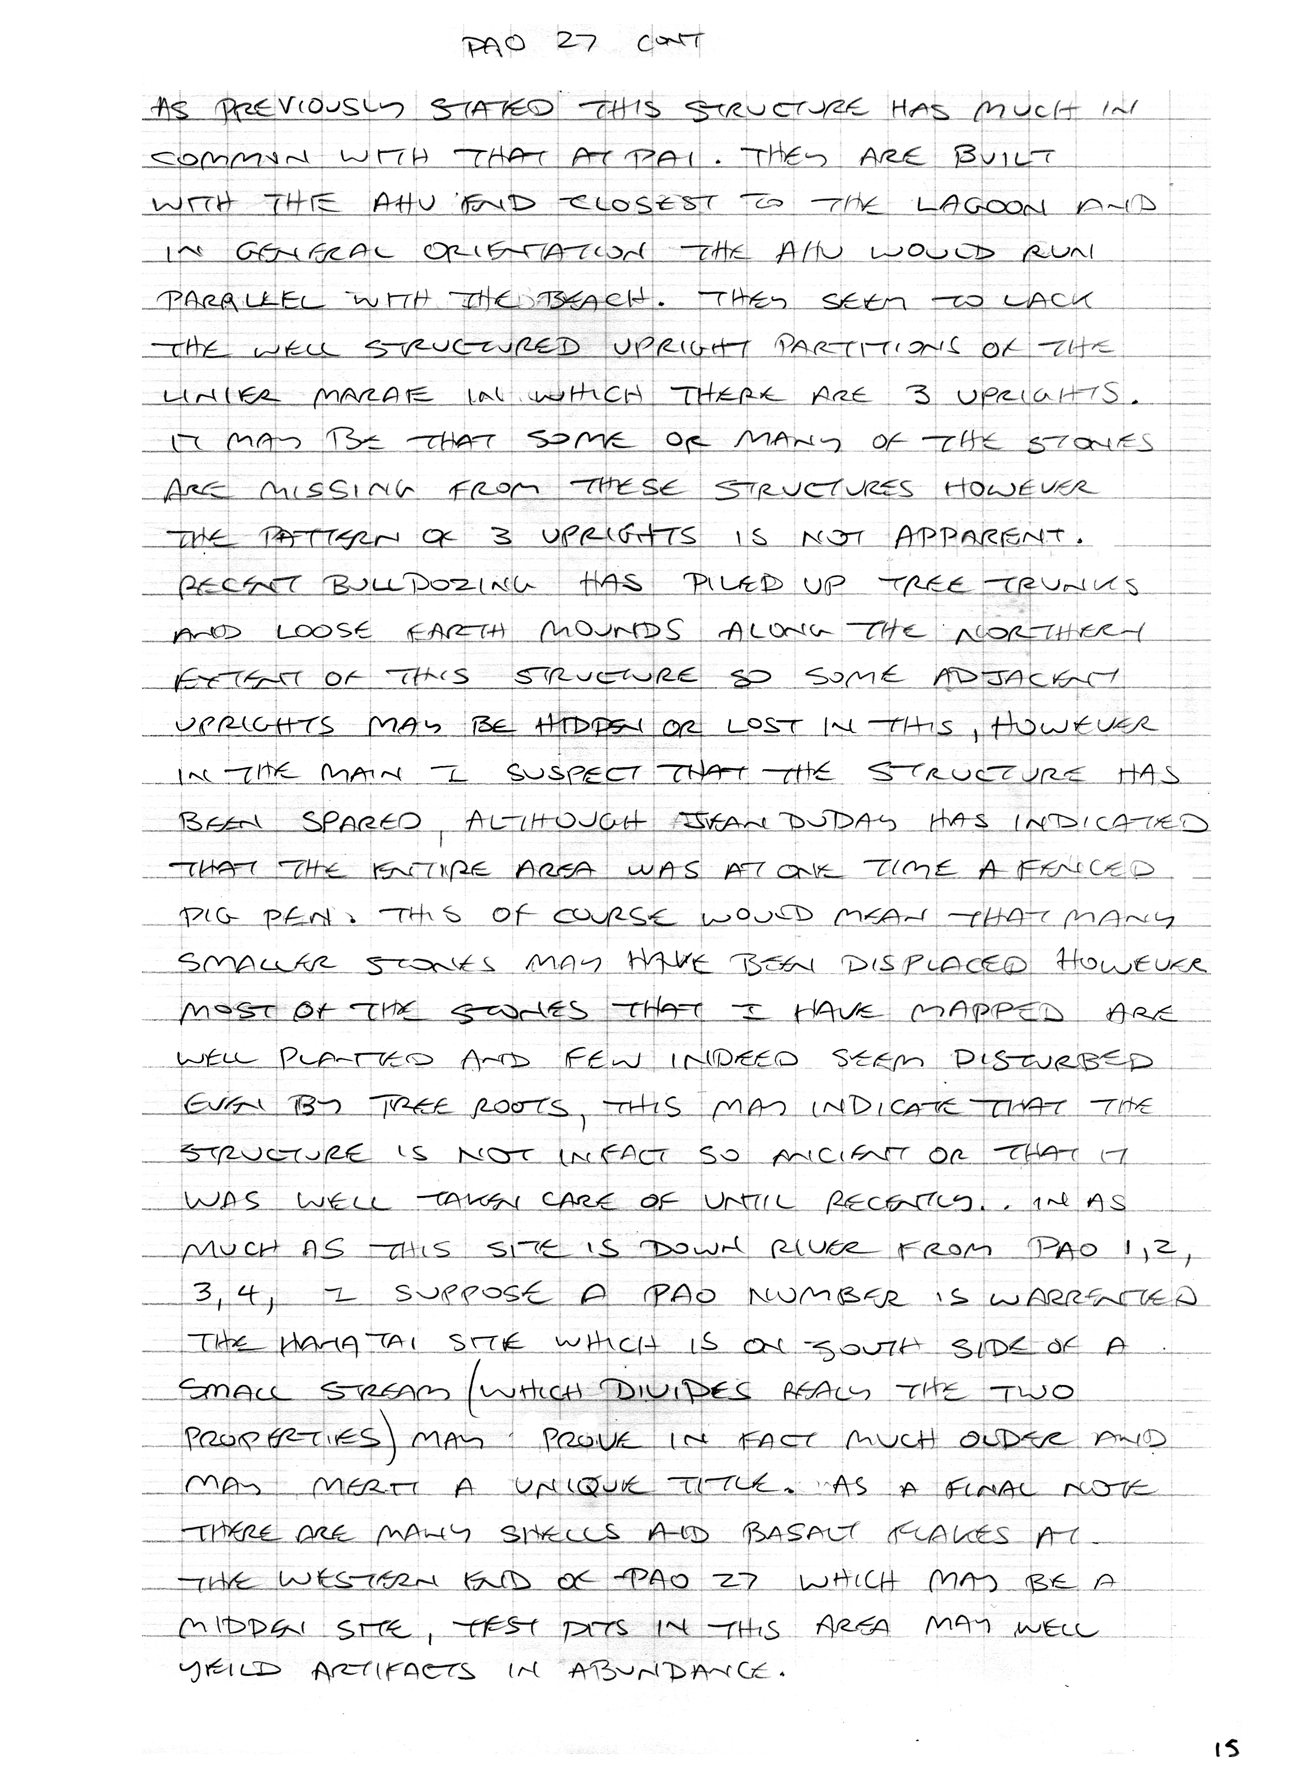 PAO 27 CONT
AS PREVIOUSLY STATED THIS STRUCTURE HAS MUCH IN
COMMON WITH THAT AT PA1. THEY ARE BUILT
WITH THE AHU END CLOSEST TO THE LAGOON AND
IN GENERAL ORIENTATION THE AHU WOULD RUN
PARALLEL WITH THE BEACH. THEY SEEM TO LACK
THE WELL STRUCTURED UPRIGHT PARTITIONS OF THE
LINIER MARAE IN WHICH THERE ARE 3 UPRIGHTS.
IT MAY BE THAT SOME OR MANY OF THE STONES
ARE MISSING FROM THESE STRUCTURES HOWEVER
THE PATTERN OF 3 UPRIGHTS IS NOT APPARENT.
RECENT BULLDOZING HAS PILED UP TREE TRUNKS
AND LOOSE EARTH MOUNDS ALONG THE NORTHERN
EXTENT OF THIS STRUCTURE SO SOME ADJACENT
UPRIGHTS MAY BE HIDDEN OR LOST IN THIS, HOWEVER
IN THE MAIN I SUSPECT THAT THE STRUCTURE HAS
BEEN SPARED, ALTHOUGH JEAN DUDAY HAS INDICATED
THAT THE ENTIRE AREA WAS AT ONE TIME A FENCED
PIG PEN. THIS OF COURSE WOULD MEAN THAT MANY
SMALLER STONES MAY HAVE BEEN DISPLACED HOWEVER
MOST OF THE STONES THAT I HAVE MAPPED ARE
WELL PLANTED AND FEW INDEED SEEM DISTURBED
EVEN BY TREE ROOTS, THIS MAY INDICATE THAT THE
STRUCTURE IS NOT INFACT SO ANCIENT OR THAT IT
WAS WELL TAKEN CARE OF UNTIL RECENTLY.. IN AS
MUCH AS THIS SITE IS DOWN RIVER FROM PAO 1, 2,
3, 4, I SUPPOSE A PAO NUMBER IS WARRENTED
THE SITE WHICH IS ON SOUTH SIDE OF A
SMALL STREAM (WHICH DIVIDES REALY THE TWO
PROPERTIES) MAY PROVE IN FACT MUCH OLDER AND
MAY MERIT A UNIQUE TITLE. AS A FINAL NOTE
THERE ARE MANY SHELLS AND BASALT FLAKES AT
THE WESTERN END OF PAO 27 WHICH MAY BE A
MIDDEN SITE, TEST PITS IN THIS AREA MAY WELL
YEILD ARTIFACTS IN ABUNDANCE.
15